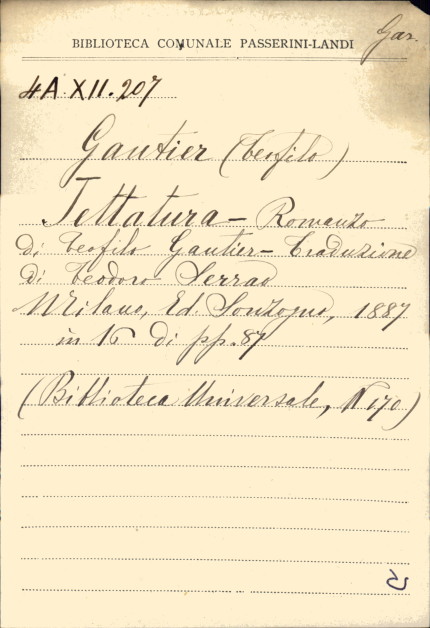 Gar.
BIBLIOTECA COMUNALE PASSERINI-LANDI
4A.XII.207
Gautier (Teofilo)
Jettatura - Romanzo
di Teofilo Gautier - Traduzione
di Teodoro Serrao
Milano, Ed. Sonzogno, 1887
in 16 di pp. 87
(Biblioteca Universale, N 170)